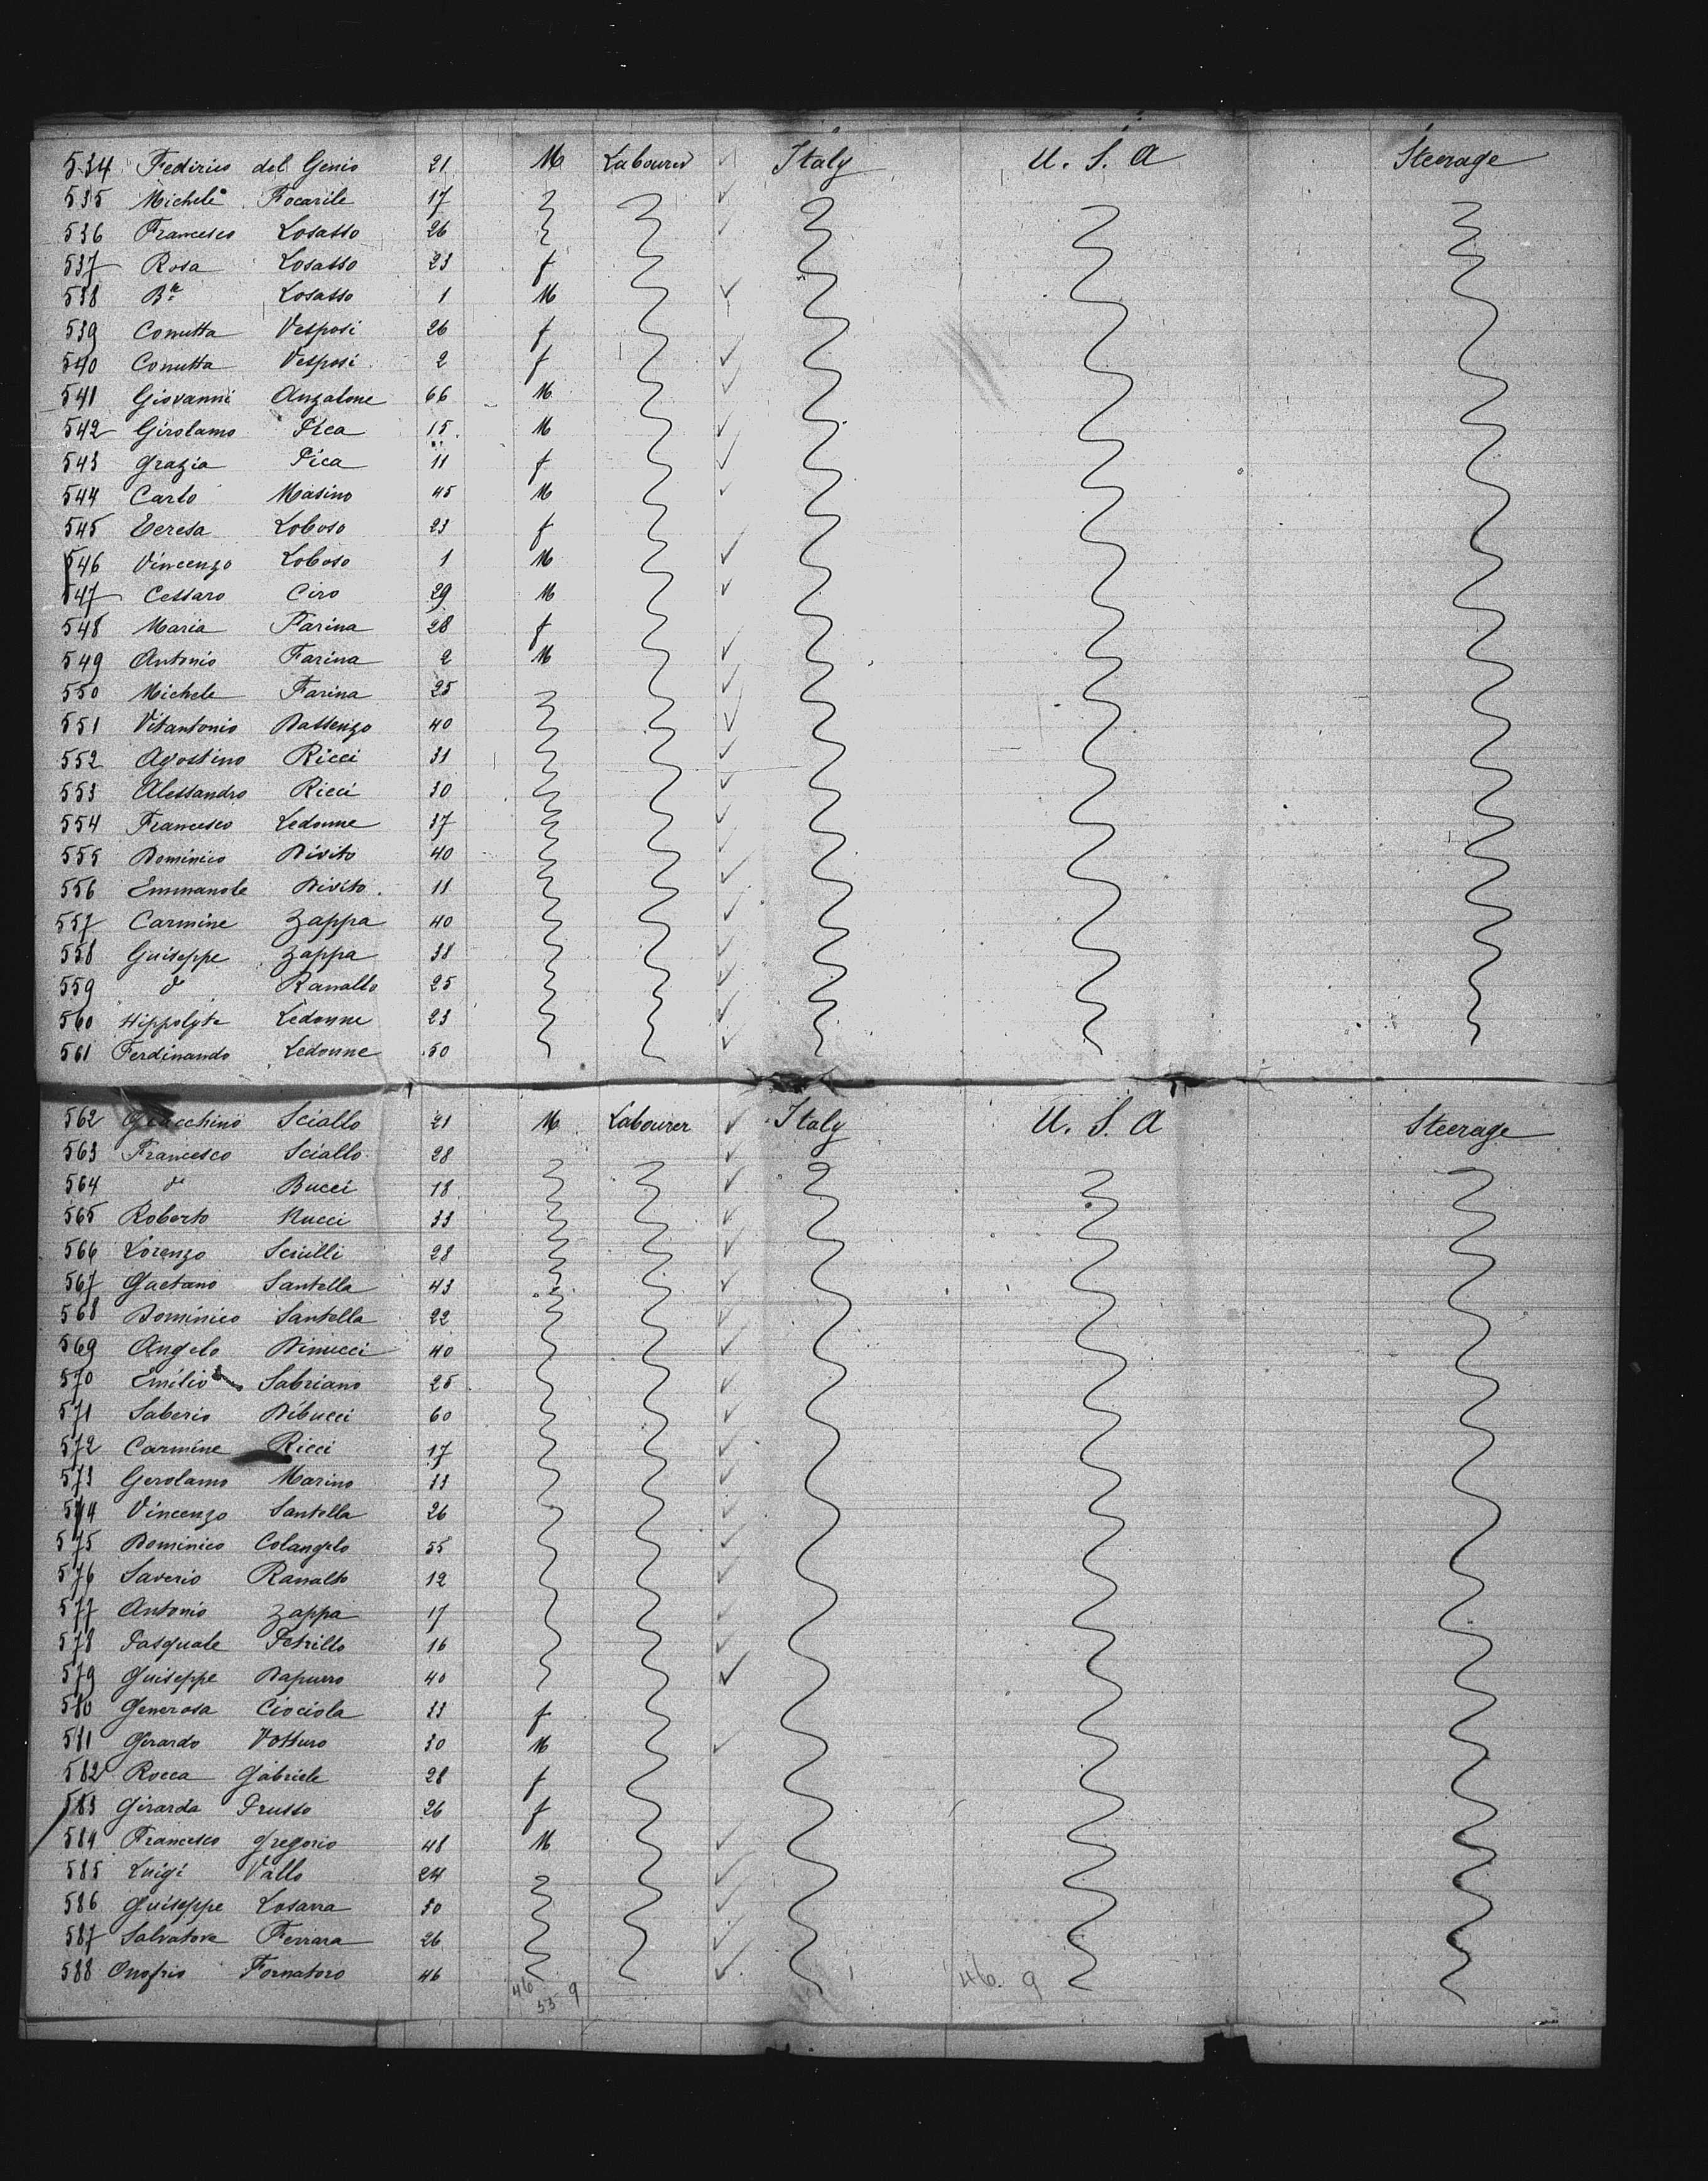 534 Federico del Genio 21 M Labourer Italy U. S. A Steerage
535 Michele Focarile 17
536 Francesco Losasso 26
537 Rosa Losasso 23 f
538 Losasso 1 M
539 Comutta Vesposi 26 f
540 Comutta Vesposi 2 f
541 Giovanni Anzalone 66 M
542 Girolamo Pica 15 M
543 Grazia Pica 11 f
544 Carlo Masino 45 M
545 Teresa Loboso 23 f
546 Vincenzo Loboso 1 M
547 Cessaro Ciro 29 M
548 Maria Farina 28 f
549 Antonio Farina 2 M
550 Michele Farina 25
551 Vitantonio Dassenzo 40
552 Agostino Ricci 31
553 Alessandro Ricci 30
554 Francesco Ledonne 37
555 Dominico Divito 40
556 Emmanole Divito 11
557 Carmine Zappa 40
558 Guiseppe Zappa 38
559 do Ranallo 25
560 Hippolyte Ledonne 23
561 Ferdinando Ledonne 50
562 Sciallo 21 M Labourer Italy U. S. A Steerage
563 Francesco Sciallo 28
564 do Bucci 18
565 Roberto Nucci 33
566 Lorenzo Sciulli 28
567 Gaetano Santella 43
568 Dominico Santella 22
569 Angelo Dinucci 40
570 Emilio Sabriano 25
571 Saberio Dibucci 60
572 Carmine Ricci 17
573 Gerolamo Marino 33
574 Vincenzo Santella 26
575 Dominico Colangelo 55
576 Saverio Ranallo 12
577 Antonio Zappa 17
578 Pasquale Petrillo 16
579 Guiseppe Dapuero 40
580 Generosa Ciociola 33 f
581 Girardo Votturo 30 M
582 Rocca Gabriele 28 f
583 Girarda Prusso 26 f
584 Francesco Gregorio 48 M
585 Luigi Vallo 24
586 Guiseppe Losarra 50
587 Salvatore Ferrara 26
588 Onofrio Fornatoro 46
46 9 46. 9
55